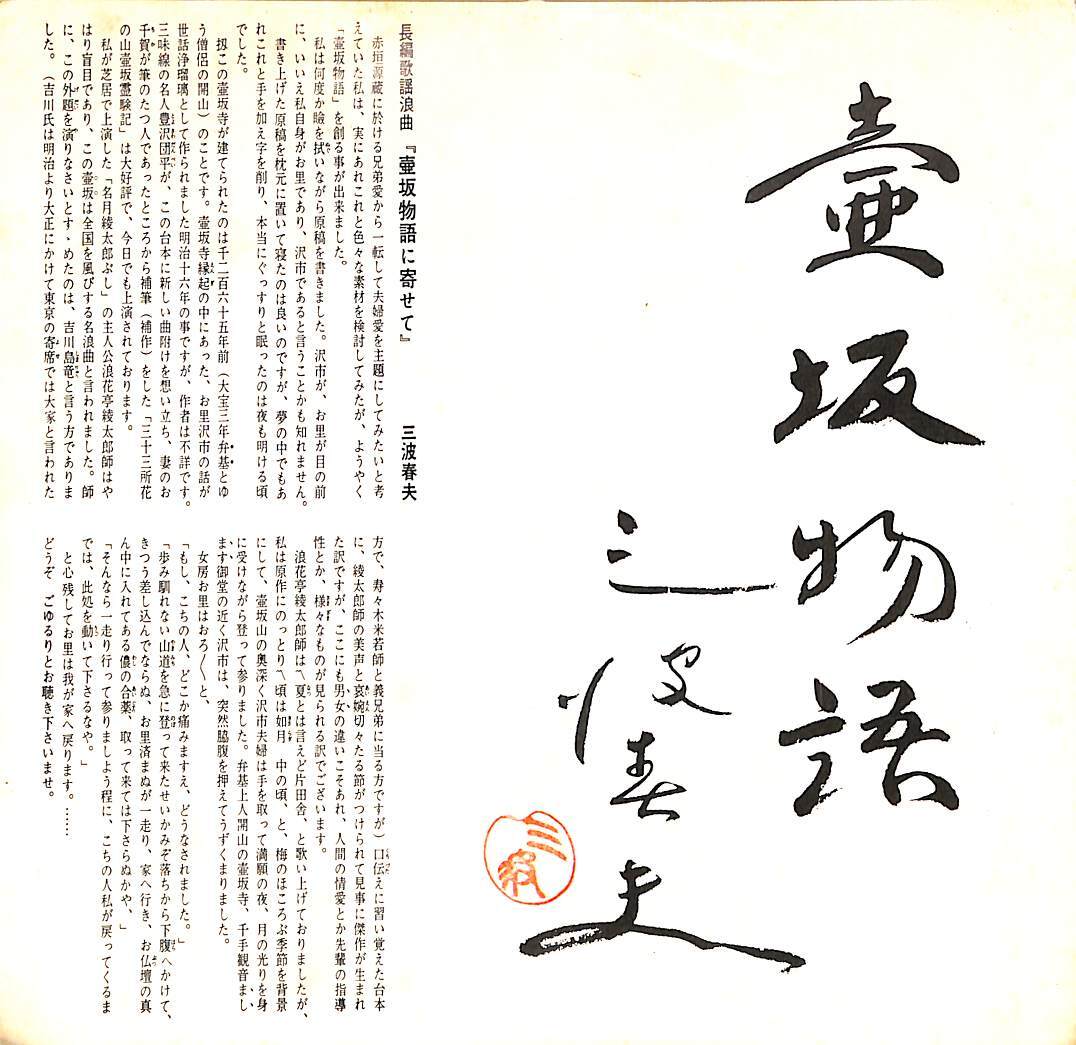 壷坂物語
三波春夫
三波
長編歌謡浪曲 『壷坂物語に寄せて』 三波春夫
赤垣源蔵に於ける兄弟愛から一転して夫婦愛を主題にしてみたいと考
えていた私は、実にあれこれと色々な素材を検討してみたが、ようやく
「壷坂物語」を創る事が出来ました。
私は何度か瞼を拭いながら原稿を書きました。沢市が、お里が目の前
に、いいえ私自身がお里であり、沢市であると言うことかも知れません。
書き上げた原稿を枕元に置いて寝たのは良いのですが、夢の中でもあ
れこれと手を加え字を削り、本当にぐっすりと眠ったのは夜も明ける頃
でした。
扨この壷坂寺が建てられたのは千二百六十五年前（大宝三年弁基とゆ
う僧侶の開山）のことです。壷坂寺縁起の中にあった、お里沢市の話が
世話浄瑠璃として作られました明治十六年の事ですが、作者は不詳です。
三味線の名人豊沢団平が、この台本に新しい曲附けを想い立ち、妻のお
千賀が筆のたつ人であったところから補筆（補作）をした「三十三所花
の山壷坂霊験記」は大好評で、今日でも上演されております。
私が芝居で上演した「名月綾太郎ぶし」の主人公浪花亭綾太郎師はや
はり盲目であり、この壷坂は全国を風びする名浪曲と言われました。師
に、この外題を演りなさいとすゝめたのは、吉川島竜と言う方でありま
した。（吉川氏は明治より大正にかけて東京の寄席では大家と言われた
方で、寿々木米若師と義兄弟に当る方ですが）口伝えに習い覚えた台本
に、綾太郎師の美声と哀婉切々たる節がつけられて見事に傑作が生まれ
た訳ですが、ここにも男女の違いこそあれ、人間の情愛とか先輩の指導
性とか、様々なものが見られる訳でございます。
浪花亭綾太郎師は〽夏とは言えど片田舎、と歌い上げておりましたが、
私は原作にのっとり〽頃は如月 中の頃、と、梅のほころぶ季節を背景
にして、壷坂山の奥深く沢市夫婦は手を取って満願の夜、月の光りを身
に受けながら登って参りました。弁基上人開山の壷坂寺、千手観音まし
ます御堂の近く沢市は、突然脇腹を押えてうずくまりました。
女房お里はおろ〳〵と、
「もし、こちの人、どこか痛みますえ、どうなされました。」
「歩み馴れない山道を急に登って来たせいかみぞ落ちから下腹へかけて、
きつう差し込んでならぬ、お里済まぬが一走り、家へ行き、お仏壇の真
ん中に入れてある儂の合薬、取って来ては下さらぬかや、」
「そんなら一走り行って参りましよう程に、こちの人私が戻ってくるま
では、此処を動いて下さるなや。」
と心残してお里は我が家へ戻ります。……
どうぞ ごゆるりとお聴き下さいませ。